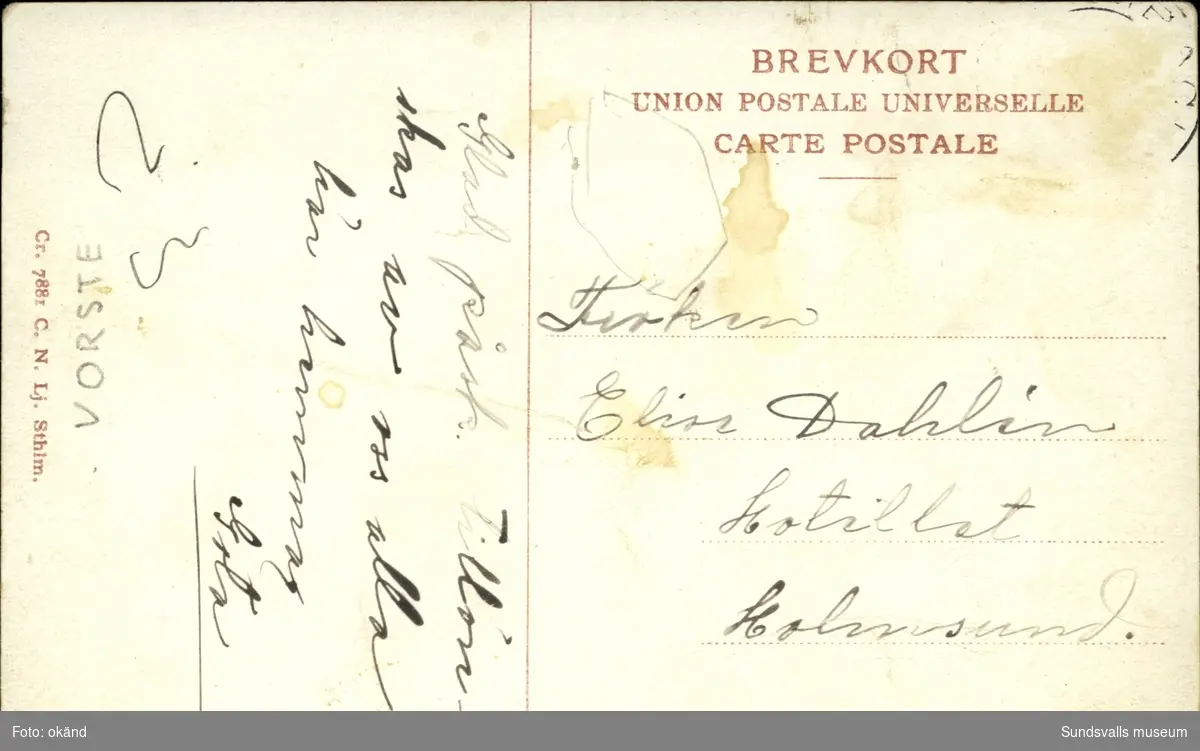 BREVKORT
UNION POSTALE UNIVERSELLE
CARTE POSTALE
Fröken
Elise Dahlin
Hotellet
Holmsund.
Glad påsk. tillön-
skas av oss alla
här hemma
Göta
VORSTE
Cr. 7881 C. N. Lj. Sthlm.
Foto: okänd
Sundsvalls museum